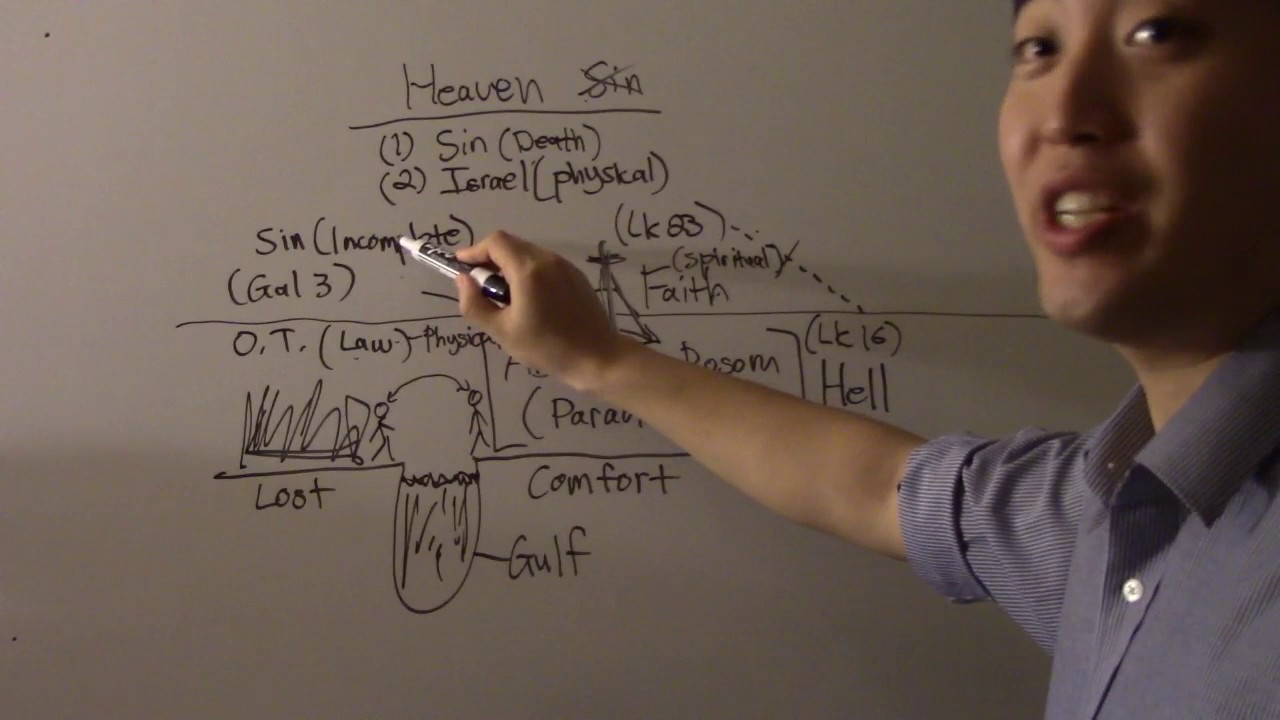 Heaven Sin
(1) Sin (Death)
(2) Israel (physical)
Sin (Incomplete)
(Gal 3)
(Lk 23)
(spiritual)
Faith
O.T. (Law) - Physical
Bosom
(Lk 16)
Hell
Lost
Comfort
Gulf